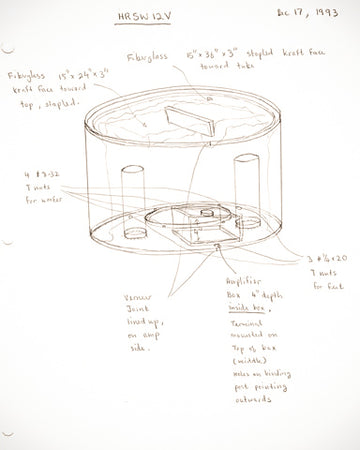 HRSW 12V
Dec 17, 1993
Fiberglass 15" x 36" x 3" stapled kraft face
toward tube
Fiberglass 15" x 24" x 3"
kraft face toward
top, stapled.
4 #8-32
T nuts
for woofer
3 #¼ x 20
T nuts
for feet
Veneer
Joint
lined up,
on amp
side.
Amplifier
Box 4" depth
inside box.
Terminal
mounted on
Top of box
(middle)
Holes on binding
post pointing
outwards